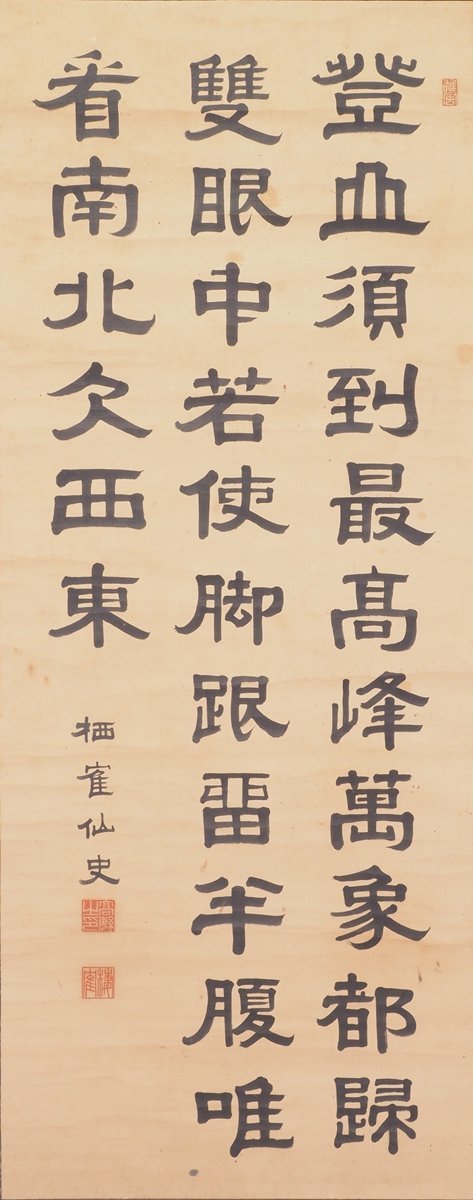 登山須到最髙峰萬象都歸
雙眼中若使脚跟畱半腹唯
看南北欠西東
栖寉仙史